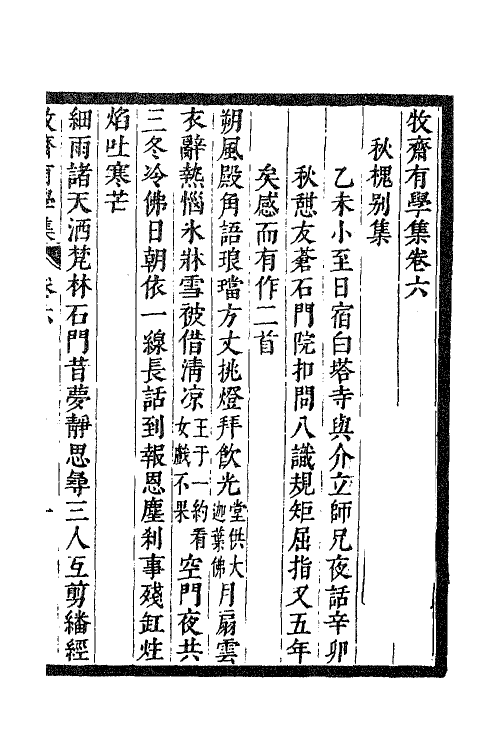 牧齋有學集卷六
秋槐别集
乙未小至日宿白塔寺與介立師兄夜話辛卯
秋憇友蒼石門院扣問八識規矩屈指又五年
矣感而有作二首
朔風殿角語琅璫方丈挑燈拜飮光堂供大迦葉佛月扇雲
衣辭熱惱氷牀雪被借清凉王于一約看女戲不果空門夜共
三冬冷佛日朝依一線長話到報恩塵刹事殘缸炷
焰吐寒芒
細雨諸天洒梵林石門昔夢靜思尋三人互剪繙經
牧齋有學集 卷六 一